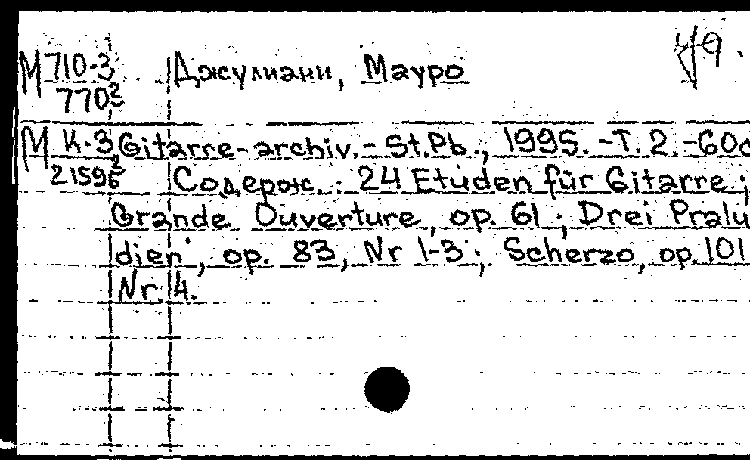 М 710-3 Джулиани, Мауро
770
М К-3 Gitarre-archiv.- St.Pb., 1995. -T. 2.-60c
2159 Содерож. : 24 Etuden für Gitarre ;
Grande Ouverture, op. 61 ; Drei Pralu
dien, op. 83, Nr 1-3 ; Scherzo, op. 101
Nr. 4.